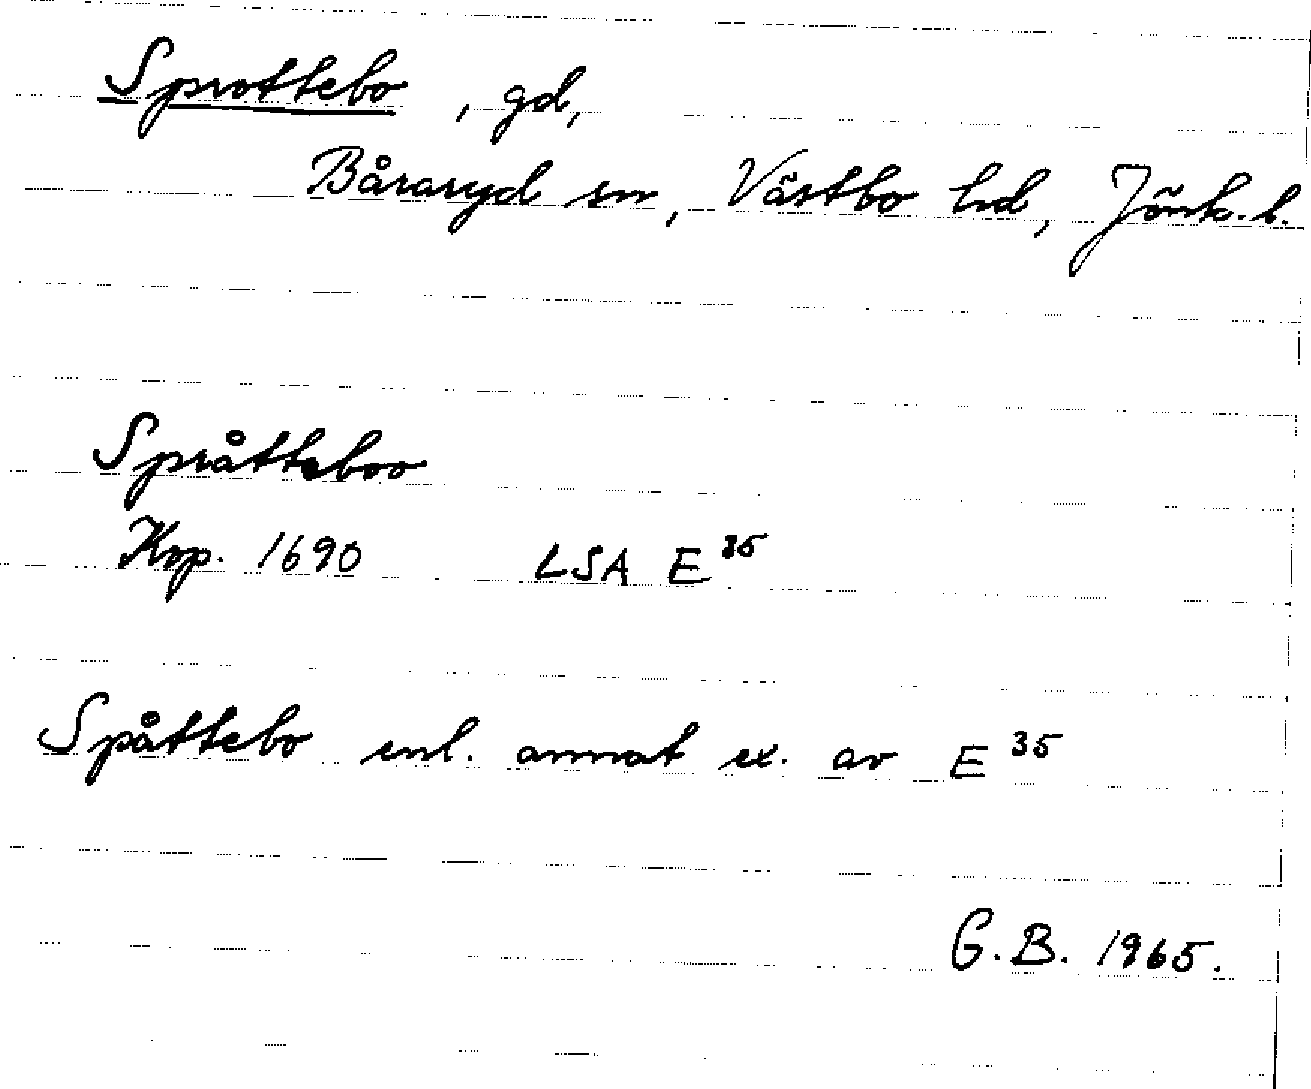 Sprottebo , gd,
Båraryd sn, Västbo hd, Jönk. l.
Språtteboo
Kop. 1690 LSA E 35
Spåttebo enl. annat ex. av E 35
G.B. 1965.